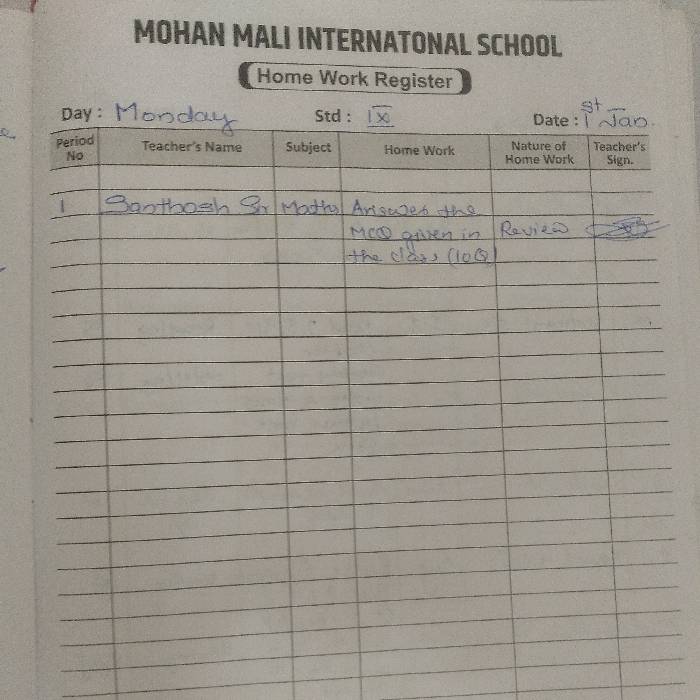 MOHAN MALI INTERNATONAL SCHOOL
Home Work Register
Day : Monday Std : IX Date : 1st Jan.
Period No Teacher's Name Subject Home Work Nature of Home Work Teacher's Sign.
1 Santhosh Sir Maths Answer the
MCQ given in Review
the class (10Q)